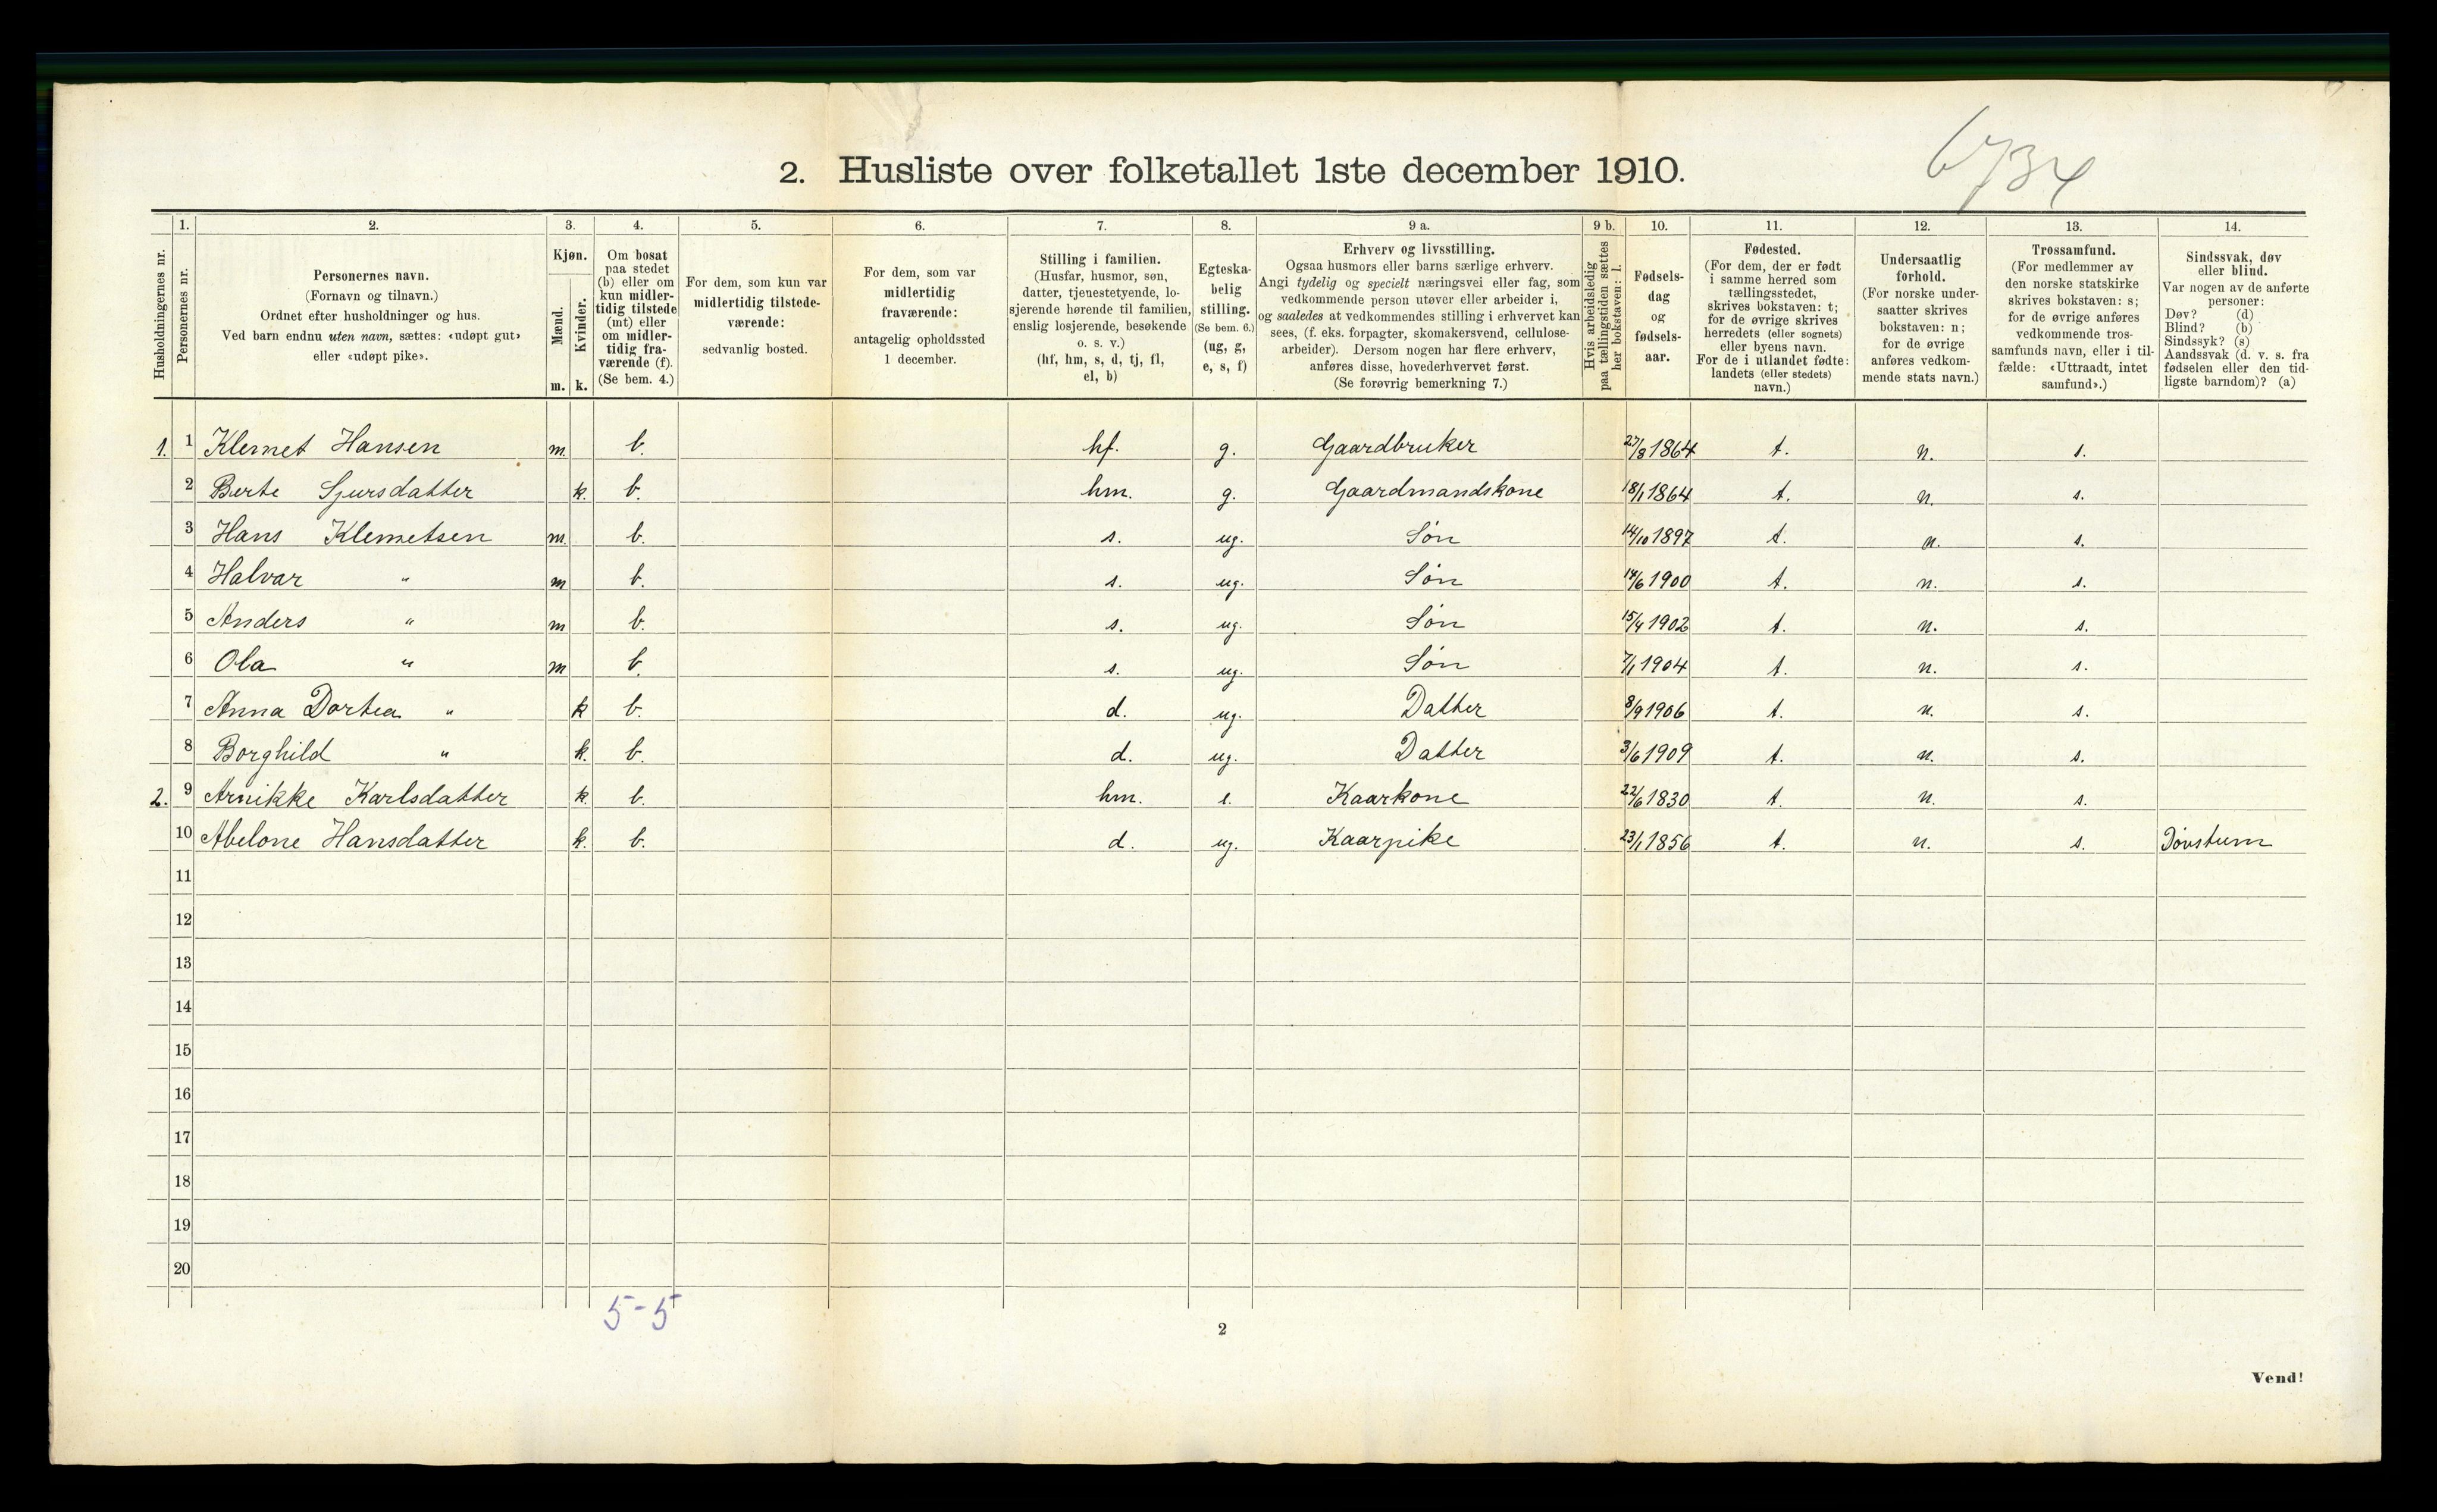 6734
2. Husliste over folketallet 1ste december 1910.
Husholdningernes nr.
1.
Personernes nr.
2.
Personernes navn.
(Fornavn og tilnavn.)
Ordnet efter husholdninger og hus.
Ved barn endnu uten navn, sættes: «udøpt gut»
eller «udøpt pike».
3.
Kjøn.
Mænd.
m.
Kvinder.
k.
4.
Om bosat
paa stedet
(b) eller om
kun midler-
tidig tilstede
(mt) eller
om midler-
tidig fra-
værende (f).
(Se bem. 4.)
5.
For dem, som kun var
midlertidig tilstede-
værende:
sedvanlig bosted.
6.
For dem, som var
midlertidig
fraværende:
antagelig opholdssted
1 december.
7.
Stilling i familien.
(Husfar, husmor, søn,
datter, tjenestetyende, lo-
sjerende hørende til familien,
enslig losjerende, besøkende
o. s. v.)
(hf, hm, s, d, tj, fl,
el, b)
8.
Egteska-
belig
stilling.
(Se bem. 6.)
(ug, g,
e, s, f)
9 a.
Erhverv og livsstilling.
Ogsaa husmors eller barns særlige erhverv.
Angi tydelig og specielt næringsvei eller fag, som
vedkommende person utøver eller arbeider i,
og saaledes at vedkommendes stilling i erhvervet kan
sees, (f. eks. forpagter, skomakersvend, cellulose-
arbeider). Dersom nogen har flere erhverv,
anføres disse, hovederhvervet først.
(Se forøvrig bemerkning 7.)
9 b.
Hvis arbeidsledig
paa tællingstiden sættes
her bokstaven: l.
10.
Fødsels-
dag
og
fødsels-
aar.
11.
Fødested.
(For dem, der er født
i samme herred som
tællingsstedet,
skrives bokstaven: t;
for de øvrige skrives
herredets (eller sognets)
eller byens navn.
For de i utlandet fødte:
landets (eller stedets)
navn.)
12.
Undersaatlig
forhold.
(For norske under-
saatter skrives
bokstaven: n;
for de øvrige
anføres vedkom-
mende stats navn.)
13.
Trossamfund.
(For medlemmer av
den norske statskirke
skrives bokstaven: s;
for de øvrige anføres
vedkommende tros-
samfunds navn, eller i til-
fælde: «Uttraadt, intet
samfund».)
14.
Sindssvak, døv
eller blind.
Var nogen av de anførte
personer:
Døv? (d)
Blind? (b)
Sindssyk? (s)
Aandssvak (d. v. s. fra
fødselen eller den tid-
ligste barndom)? (a)
1. 1 Klemet Hansen m. b. hf. g. Gaardbruker 27/8 1864 t. n. s.
2 Berte Sjursdatter k. b. hm. g. Gaardmandskone 18/1 1864 t. n. s.
3 Hans Klemetsen m. b. s. ug. Søn 14/10 1897 t. n. s.
4 Halvar " m b. s. ug. Søn 14/6 1900 t. n. s.
5 Anders " m b. s. ug. Søn 15/4 1902 t. n. s.
6 Ola " m b. s. ug. Søn 7/1 1904 t. n. s.
7 Anna Dortea " k b. d. ug. Datter 8/9 1906 t. n. s.
8 Borghild " k. b. d. ug. Datter 3/6 1909 t. n. s.
2. 9 Arnikke Karlsdatter k. b. hm. e. Kaarkone 22/6 1830 t. n. s.
10 Abelone Hansdatter k. b. d. ug. Kaarpike 23/1 1856 t. n. s. Døvstum
11
12
13
14
15
16
17
18
19
20
5-5
2
Vend!